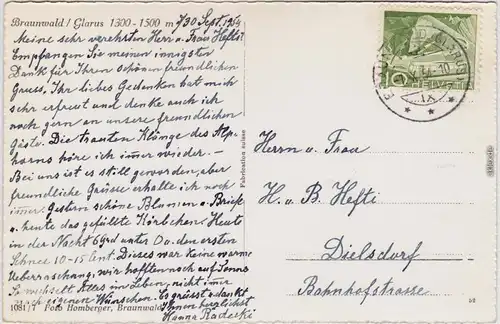 Braunwald / Glarus 1300-1500 m ü/M
30 Sept. 1954
Meine sehr verehrten Herr u. Frau Hefti
Empfangen Sie meinen innigsten
Dank für Ihren schönen freundlichen
Gruss, Ihr liebes Gedenken hat mich
sehr erfreut und denke auch ich
noch gern an unsere freundlichen
Gäste. Die trauten Klänge des Alp-
horns höre ich immer wieder. —
Bei uns ist es still geworden, aber
freundliche Grüsse erhalte ich noch
immer. Gestern schöne Blumen u. Briefe
u. heute das gefüllte Körbchen. Heut
in der Nacht 6 Grd unter 0 u. den ersten
Schnee 10-15 cent. Dieses war keine warme
Ueberraschung, wir hofften noch auf Sonne
So wechselt alles im Leben, nicht immer
nach eigenen Wünschen. Es grüsst u. dankt
Ihnen herzlichst
Hanna Radecki
10817 Foto Homberger, Braunwald
Fabrication suisse
HELVETIA
10
IX
Herrn u. Frau
H. u. B. Hefti
Dielsdorf
Bahnhofstrasse